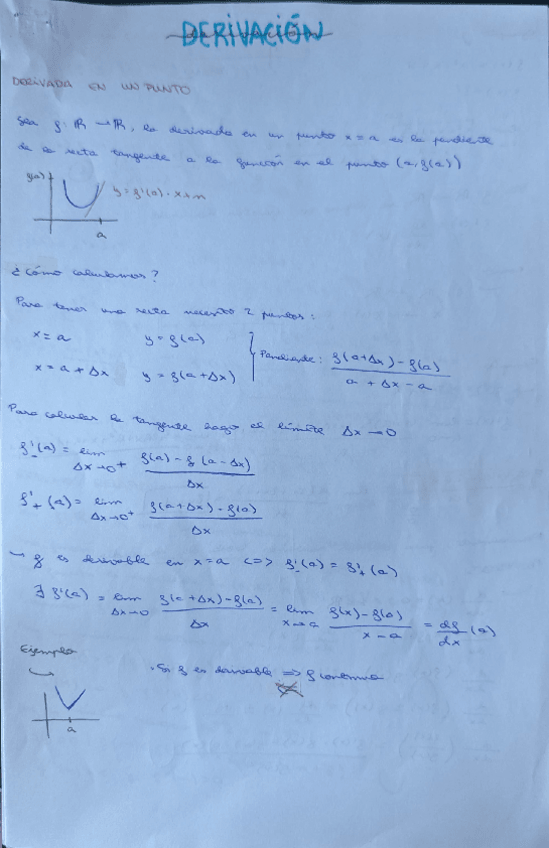 DERIVACIÓN
DERIVADA EN UN PUNTO
Sea f: ℝ → ℝ, la derivada en un punto x = a es la pendiente
de la recta tangente a la función en el punto (a, f(a))
f(x)
y = f'(a) · x + n
a
¿Cómo calculamos?
Para tener una recta necesito 2 puntos:
x = a y = f(a)
x = a + Δx y = f(a+Δx)
Pendiente: (f(a+Δx) - f(a)) / (a + Δx - a)
Para calcular la tangente hago el límite Δx → 0
f'₋(a) = lim Δx→0⁺ (f(a) - f(a - Δx)) / Δx
f'₊(a) = lim Δx→0⁺ (f(a+Δx) - f(a)) / Δx
→ f es derivable en x = a <=> f'₋(a) = f'₊(a)
∃ f'(a) = lim Δx→0 (f(a+Δx) - f(a)) / Δx = lim x→a (f(x) - f(a)) / (x - a) = df/dx (a)
Ejemplo
· Si f es derivable => f continua
a